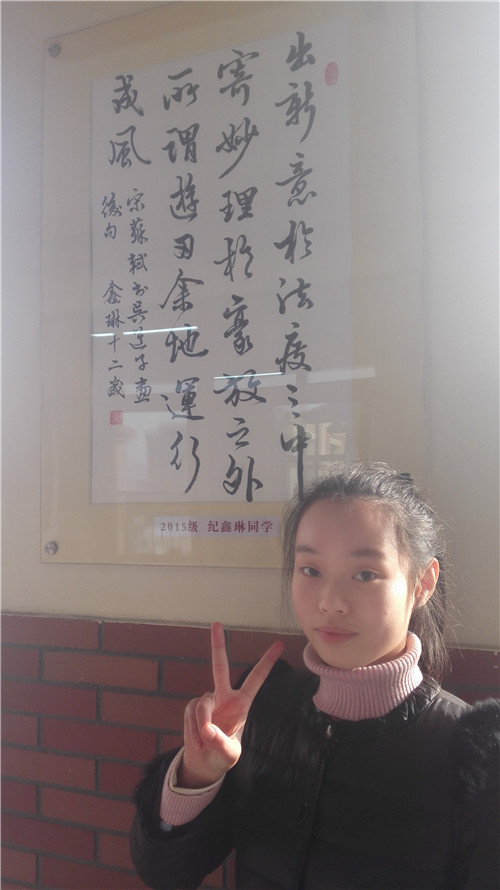 出新意於法度之中
寄妙理於豪放之外
所謂遊刃余地運斤
成風
宋蘇軾書吳道子畫
後句 鑫琳十二歲
2015级 纪鑫琳同学